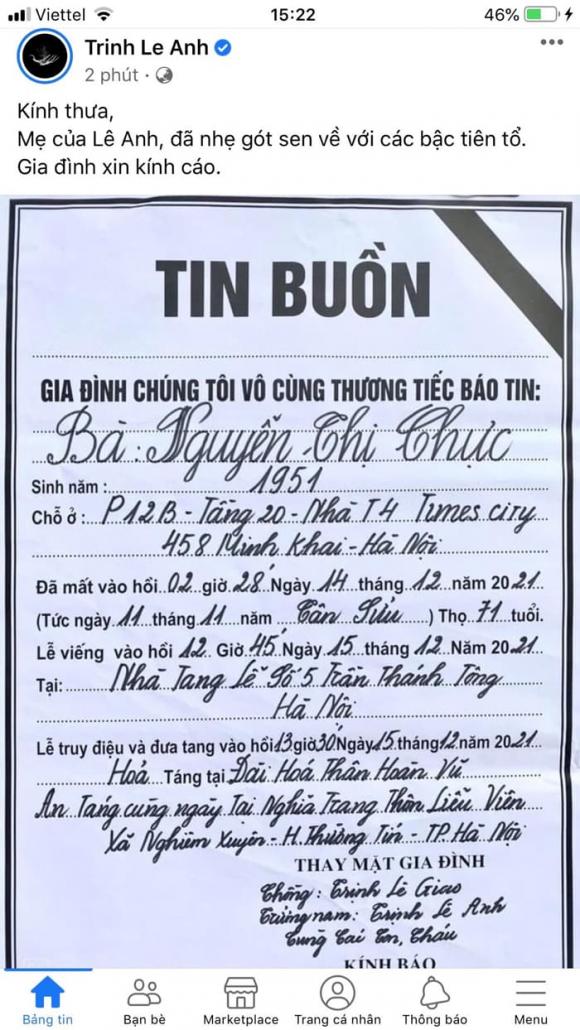 Viettel 15:22 46%
Trinh Le Anh
2 phút ·
Kính thưa,
Mẹ của Lê Anh, đã nhẹ gót sen về với các bậc tiên tổ.
Gia đình xin kính cáo.
TIN BUỒN
GIA ĐÌNH CHÚNG TÔI VÔ CÙNG THƯƠNG TIẾC BÁO TIN:
Bà: Nguyễn Thị Thực
Sinh năm: 1951
Chỗ ở: P12B - Tầng 20 - Nhà T4 Times city
458 Minh Khai - Hà Nội
Đã mất vào hồi 02 giờ 28 Ngày 14 tháng 12 năm 2021
(Tức ngày 11 tháng 11 năm Tân Sửu) Thọ 71 tuổi.
Lễ viếng vào hồi 12 Giờ 45 Ngày 15 tháng 12 Năm 2021
Tại: Nhà Tang Lễ Số 5 Trần Thánh Tông
Hà Nội
Lễ truy điệu và đưa tang vào hồi 13 giờ 30 Ngày 15 tháng 12 năm 2021
Hoả Táng tại Đài Hoá Thân Hoàn Vũ
An Táng cùng ngày Tại Nghĩa Trang Thân Liễu Viên
Xã Nghiêm Xuyên - H. Thường Tín - TP. Hà Nội
THAY MẶT GIA ĐÌNH
Chồng: Trịnh Lê Giao
Trưởng nam: Trịnh Lê Anh
Cùng Các Con, Cháu
KÍNH BÁO
Bảng tin Bạn bè Marketplace Trang cá nhân Thông báo Menu